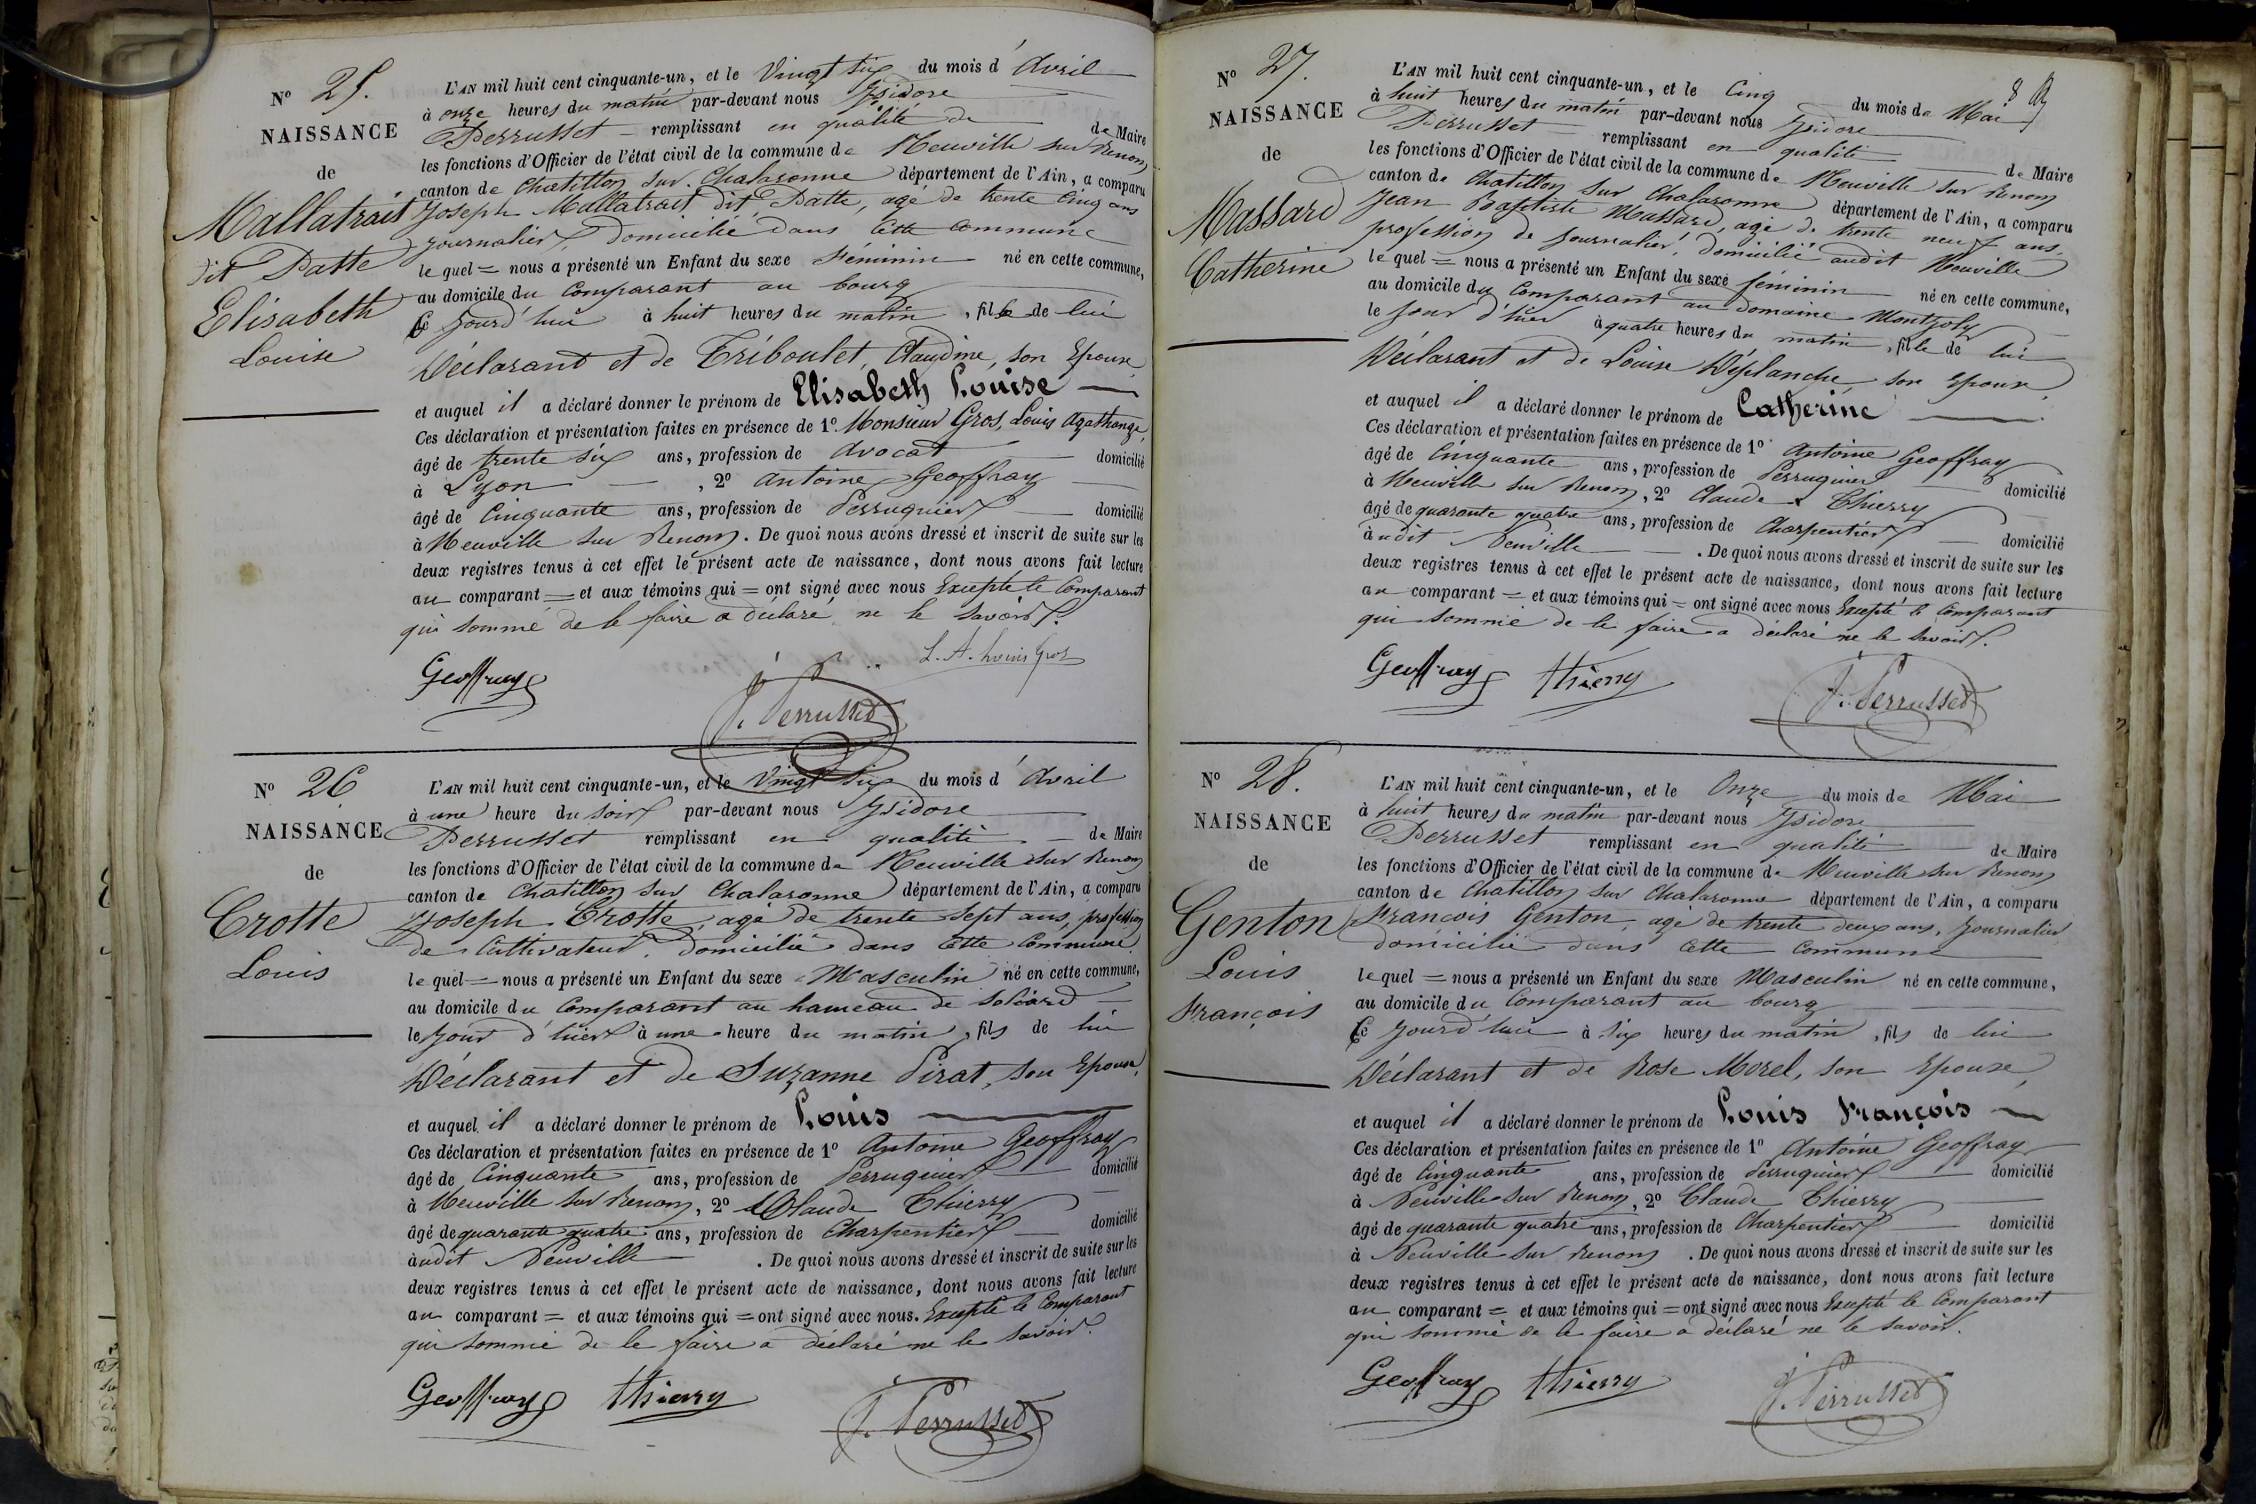 N° 25.
NAISSANCE
de
Mallatrait
dit Patte
Elisabeth
Louise
L'AN mil huit cent cinquante-un, et le Vingt six du mois d'Avril
à onze heures du matin par-devant nous Isidore
Perrusset remplissant en qualité de de Maire
les fonctions d'Officier de l'état civil de la commune de Neuville sur Renom
canton de Chatillon sur Chalaronne département de l'Ain, a comparu
Joseph Mallatrait dit Patte, agé de trente cinq ans
journalier, domicilié dans cette commune
le quel = nous a présenté un Enfant du sexe féminin né en cette commune,
au domicile du comparant au bourg
Ce jourd'hui à huit heures du matin, fille de lui
Déclarant et de Triboulet, Claudine, son Epouse
et auquel il a déclaré donner le prénom de Elisabeth Louise
Ces déclaration et présentation faites en présence de 1° Monsieur Gros, Louis Agathange,
âgé de trente six ans, profession de Avocat domicilié
à Lyon, 2° Antoine Geoffray
âgé de Cinquante ans, profession de Perruquier domicilié
à Neuville sur Renom. De quoi nous avons dressé et inscrit de suite sur les
deux registres tenus à cet effet le présent acte de naissance, dont nous avons fait lecture
au comparant = et aux témoins qui = ont signé avec nous Excepté le Comparant
qui sommé de le faire a déclaré ne le savoir.
L. A. Louis Gros
Geoffray
J. Perrusset
N° 26
NAISSANCE
de
Crotte
Louis
L'AN mil huit cent cinquante-un, et le Vingt six du mois d'Avril
à une heure du soir par-devant nous Isidore
Perrusset remplissant en qualité de Maire
les fonctions d'Officier de l'état civil de la commune de Neuville sur Renom
canton de Chatillon sur Chalaronne département de l'Ain, a comparu
Joseph Crotte, agé de trente sept ans, profession
de Cultivateur, domicilié dans cette Commune
le quel = nous a présenté un Enfant du sexe Masculin né en cette commune,
au domicile du Comparant au hameau de
le jour d'hier à une heure du matin, fils de lui
Déclarant et de Suzanne Pirat, son Epouse,
et auquel il a déclaré donner le prénom de Louis
Ces déclaration et présentation faites en présence de 1° Antoine Geoffray
âgé de Cinquante ans, profession de Perruquier domicilié
à Neuville sur Renom, 2° Claude Thierry
âgé de quarante quatre ans, profession de Charpentier domicilié
àudit Neuville. De quoi nous avons dressé et inscrit de suite sur les
deux registres tenus à cet effet le présent acte de naissance, dont nous avons fait lecture
au comparant = et aux témoins qui = ont signé avec nous. Excepté le Comparant
qui sommé de le faire a déclaré ne le savoir.
Geoffray Thierry J. Perrusset
N° 27.
NAISSANCE
de
Massard
Catherine
8
L'AN mil huit cent cinquante-un, et le Cinq du mois de Mai
à huit heures du matin par-devant nous Isidore
Perrusset remplissant en qualité de Maire
les fonctions d'Officier de l'état civil de la commune de Neuville sur Renom
canton de Chatillon sur Chalaronne département de l'Ain, a comparu
Jean Baptiste Massard, agé de trente neuf ans,
profession de journalier, domicilié audit Neuville
le quel = nous a présenté un Enfant du sexe féminin né en cette commune,
au domicile du Comparant au domaine Montjoly
le jour d'hier à quatre heures du matin, fille de lui
Déclarant et de Louise Déplanche, son Epouse,
et auquel il a déclaré donner le prénom de Catherine
Ces déclaration et présentation faites en présence de 1° Antoine Geoffray
âgé de Cinquante ans, profession de Perruquier domicilié
à Neuville sur Renom, 2° Claude Thierry
âgé de quarante quatre ans, profession de Charpentier domicilié
àudit Neuville. De quoi nous avons dressé et inscrit de suite sur les
deux registres tenus à cet effet le présent acte de naissance, dont nous avons fait lecture
au comparant = et aux témoins qui = ont signé avec nous Excepté le Comparant
qui sommé de le faire a déclaré ne le savoir.
Geoffray Thierry J. Perrusset
N° 28.
NAISSANCE
de
Genton
Louis
François
L'AN mil huit cent cinquante-un, et le Onze du mois de Mai
à huit heures du matin par-devant nous Isidore
Perrusset remplissant en qualité de Maire
les fonctions d'Officier de l'état civil de la commune de Neuville sur Renom
canton de Chatillon sur Chalaronne département de l'Ain, a comparu
François Genton, agé de trente deux ans, journalier
domicilié dans cette commune
le quel = nous a présenté un Enfant du sexe Masculin né en cette commune,
au domicile du Comparant au bourg
Ce jourd'hui à six heures du matin, fils de lui
Déclarant et de Rose Morel, son Epouse,
et auquel il a déclaré donner le prénom de Louis François
Ces déclaration et présentation faites en présence de 1° Antoine Geoffray
âgé de Cinquante ans, profession de Perruquier domicilié
à Neuville sur Renom, 2° Claude Thierry
âgé de quarante quatre ans, profession de Charpentier domicilié
à Neuville sur Renom. De quoi nous avons dressé et inscrit de suite sur les
deux registres tenus à cet effet le présent acte de naissance, dont nous avons fait lecture
au comparant = et aux témoins qui = ont signé avec nous Excepté le Comparant
qui sommé de le faire a déclaré ne le savoir.
Geoffray Thierry J. Perrusset